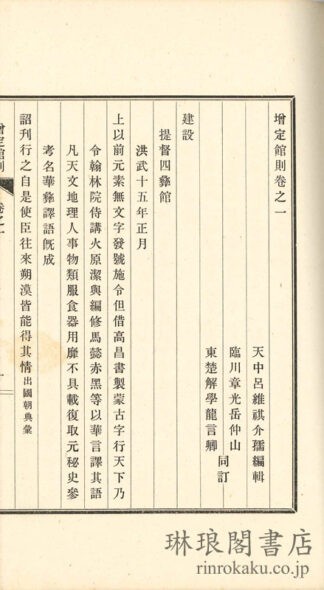 增定館則卷之一
天中呂維祺介孺編輯
臨川章光岳仲山
同訂
東楚解學龍言卿
建設
提督四彝館
洪武十五年正月
上以前元素無文字發號施令但借高昌書製蒙古字行天下乃
令翰林院侍講火原潔與編修馬懿赤黑等以華言譯其語
凡天文地理人事物類服食器用靡不具載復取元秘史參
考名華彝譯語旣成
詔刊行之自是使臣往來朔漠皆能得其情出國朝典彙
增定館則
卷之一
一
琳琅閣書店
rinrokaku.co.jp